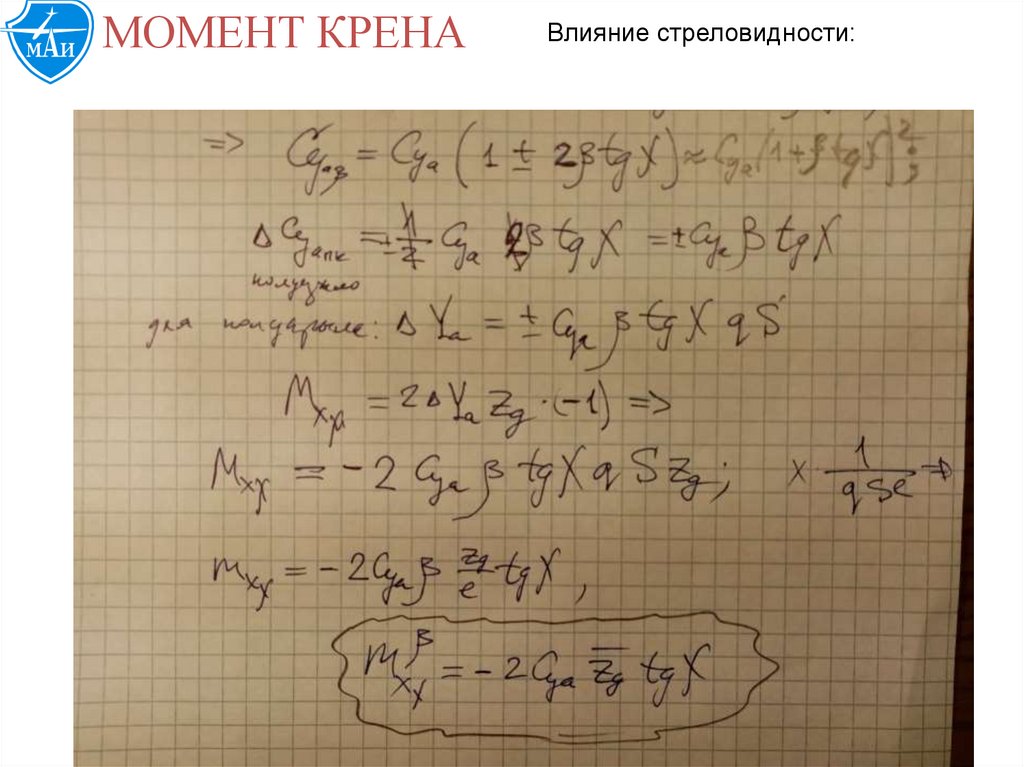 МАИ
МОМЕНТ КРЕНА
Влияние стреловидности:
=> Cyaβ = Cya (1 ± 2βtgχ) ≈ Cya (1+β tgχ)²;
Δ Cya пк = ± 1/2 Cya 2β tgχ = ± Cya β tgχ
для полукрыла: Δ Ya = ± Cya β tgχ q S
Mxχ = 2Δ Ya zg · (-1) =>
Mxχ = -2 Cya β tgχ q S zg ; × 1/qSl =>
mxχ = -2 Cya β zg/l tgχ ,
mxχ^β = -2 Cya z̄g tgχ